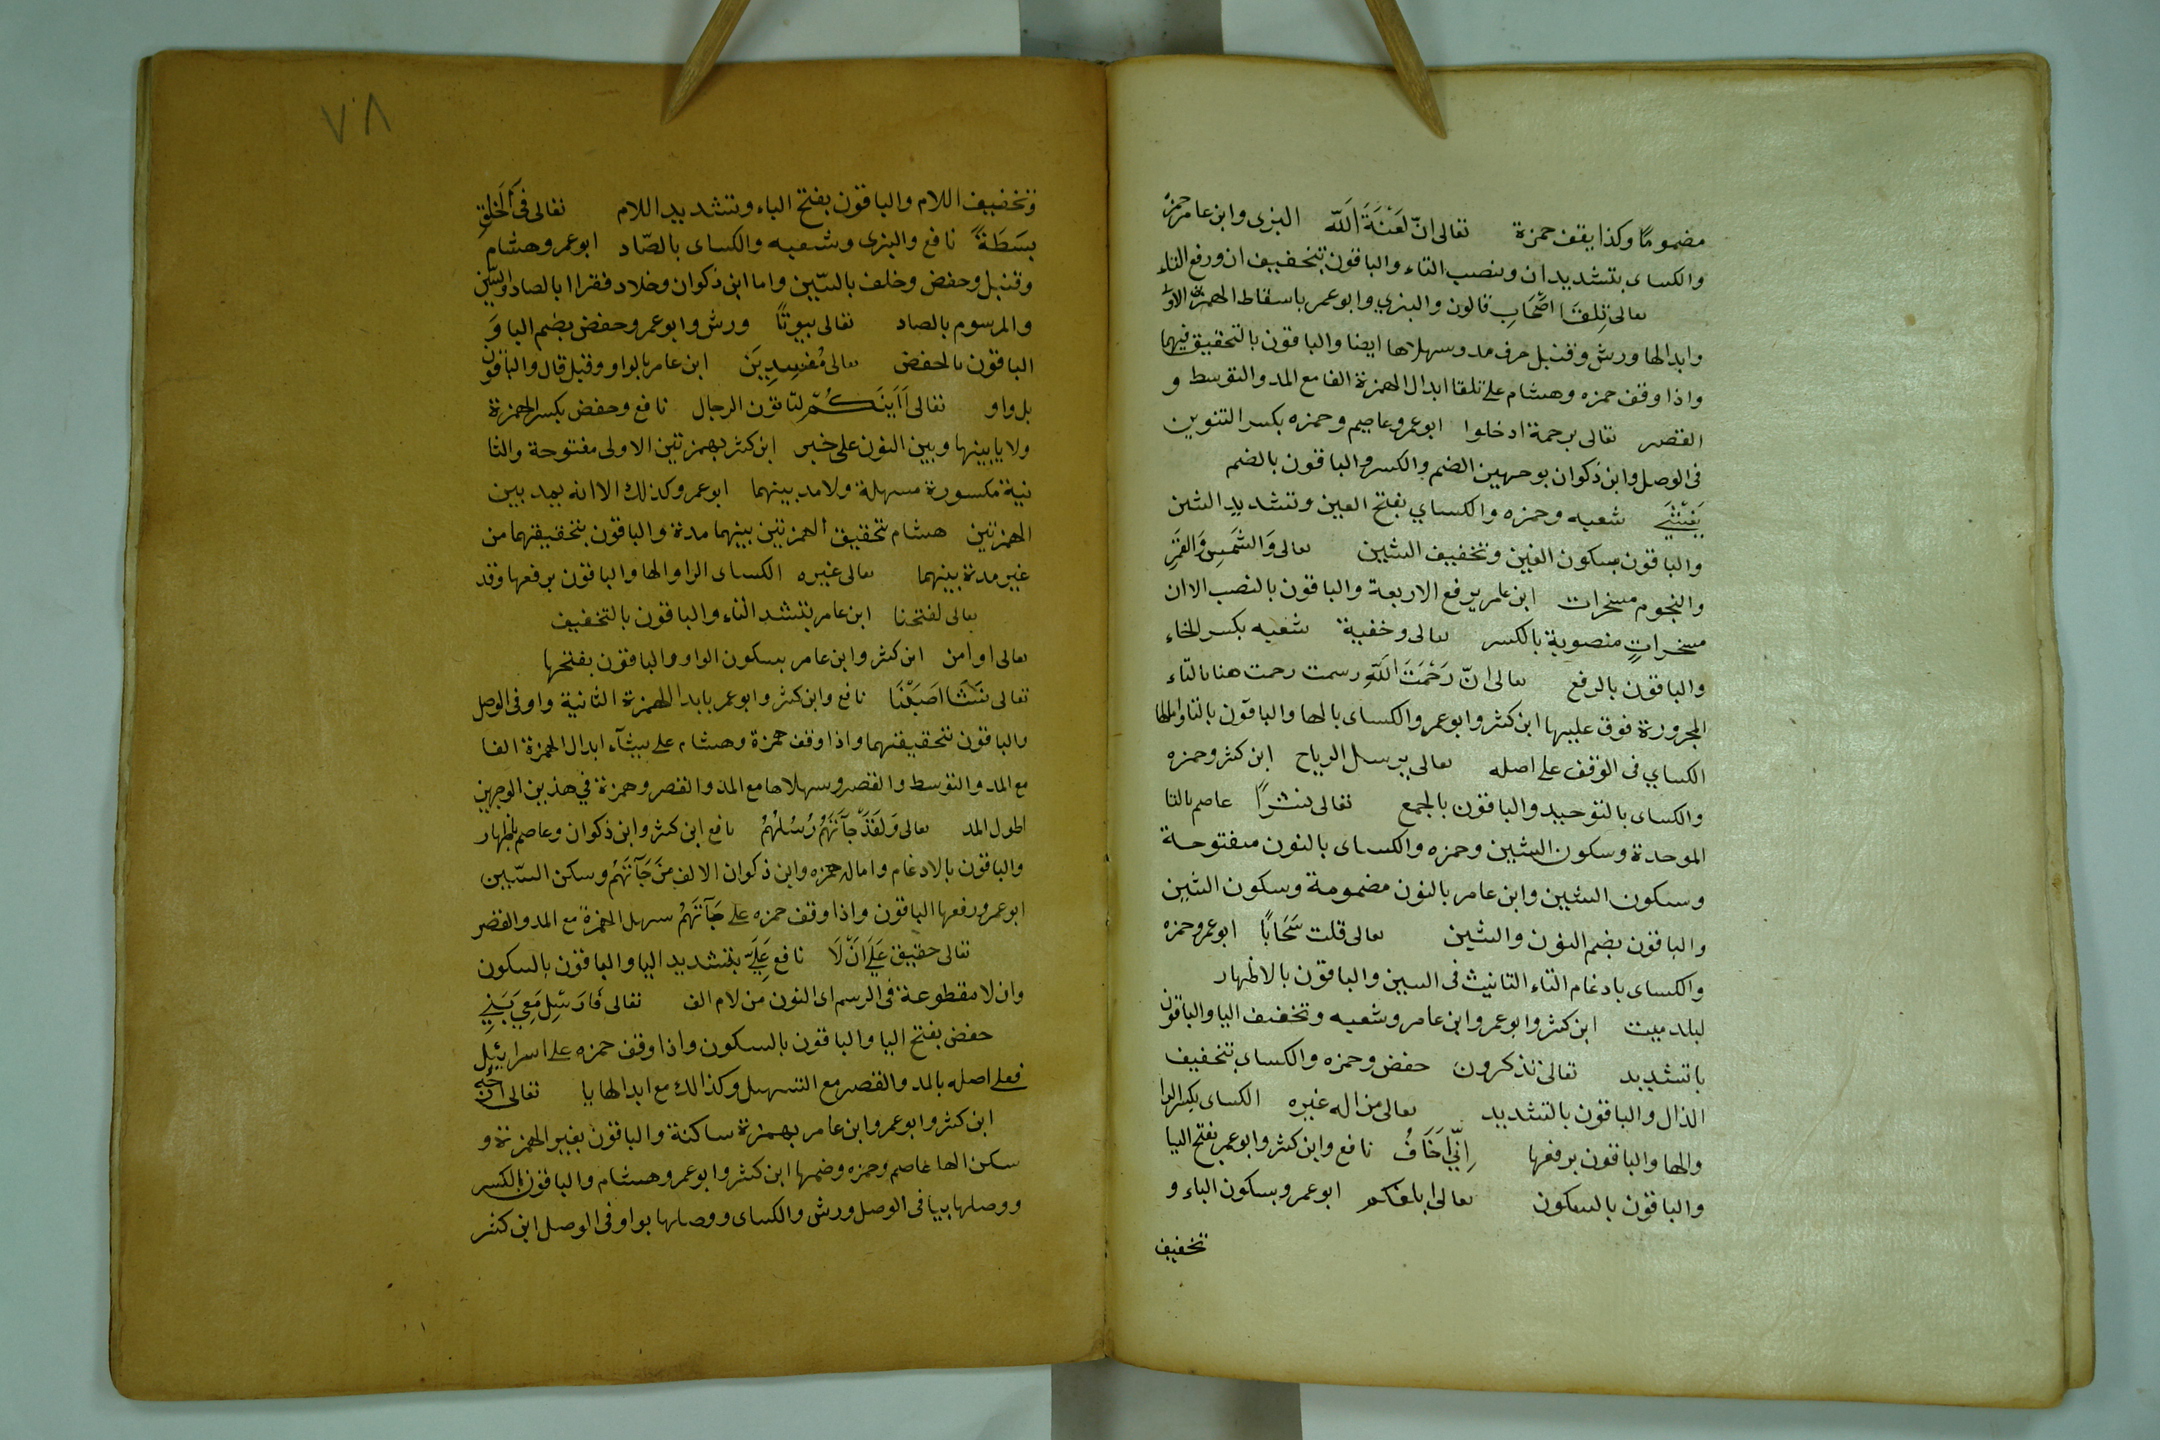 مضموما وكذا يقف حمزة تعالى انّ لَعْنَةَ اَللّه البزى وابن عامر حمزة
والكساى بتشديد ان وبنصب التاء والباقون بتخفيف ان ورفع التاء
تعالى تِلقَا اَصْحَابِ قالون والبزي وابو عمر باسقاط الهمزة الاولى
وابدالها ورش وقنبل حرف مد وسهلاها ايضا والباقون بالتحقيق فيهما
واذا وقف حمزه وهشام على تلقا ابدال الهمزة الفا مع المد والتوسط و
القصر تعالى برحمة ادخلوا ابو عمرو عاصم وحمزه بكسر التنوين
فى الوصل وابن ذكوان بوجهين الضم والكسر والباقون بالضم
يَغْشَي شعبه وحمزه والكساي بفتح الغين وتشديد الشين
والباقون بسكون الغين وتخفيف الشين تعالى وَالشَّمْسِ وَالقَمَرِ
والنجوم مسخرات ابن عامر برفع الاربعة والباقون بالنصب الا ان
مسخراتٍ منصوبة بالكسر تعالى وخفية شعبه بكسر الخاء
والباقون بالرفع تعالى انّ رَحْمَتَ اَللّهِ رسمت رحمت هنا بالتّاء
المجرورة فوقف عليها ابن كثر وابو عمر والكساى بالها والباقون بالتا وامالها
الكساي فى الوقف على اصله تعالى يرسل الرياح ابن كثر وحمزه
والكساى بالتوحيد والباقون بالجمع تعالى نشرًا عاصم بالبا
الموحدة وسكون الشين وحمزه والكساى بالنون مفتوحة
وسكون الشين وابن عامر بالنون مضمومة وسكون الشين
والباقون بضم النون والشين تعالى قلت سَحَابًا ابو عمر وحمزه
والكساى بادغام التاء التانيث فى السين والباقون بالاظهار
لبلد ميت ابن كثر وابو عمر وابن عامر وشعبه وتخفيف اليا والباقون
باتشديد تعالى تذكرون حفص وحمزه والكساى بتخفيف
الذال والباقون بالتشديد تعالى من اله غيره الكساى بكسر الرا
والها والباقون برفعها اِنِّى اَخَافُ نافع وابن كثر وابو عمر بفتح اليا
والباقون بالسكون تعالى ابلغكم ابو عمر وبسكون الباء و
تخفيف
٧٨
وتخفيف اللام والباقون بفتح الباء وتشديد اللام تعالى فى اَلْخَلْقِ
بسَطَةً نافع والبزى وشعبه والكساى بالصّاد ابو عمر وهشام
وقنبل وحفص وخلف بالسّين واما ابن ذكوان وخلاد فقراا بالصاد والسّين
والمرسوم بالصاد تعالى بيوتًا ورش وابو عمر وحفص بضم البا وَ
الباقون بالخفض تعالى مُفسِدِينَ ابن عامر بالواو وقبل قال والباقون
بل واو تعالى اَاَينَكُمْ لتاتون الرجال نافع وحفص بكسر الهمزة
ولا يا بينها وبين النون على خبر ابن كثر بهمزتين الاولى مفتوحة والثا
نية مكسورة مسهلة ولا مد بينهما ابو عمر وكذلك الا انه يمد بين
الهمزتين هشام بتحقيق الهمزتين بينهما مدة والباقون بتحقيقهما من
غير مدة بينهما تعالى غيره الكساى الرا والها والباقون برفعها وقد
تعالى لفتحنا ابن عامر بتشد التاء والباقون بالتخفيف
تعالى او امن ابن كثر وابن عامر بسكون الواو والباقون بفتحها
تعالى نشا اصبْنَا نافع وابن كثر وابو عمر بابدا الهمزة الثانية واو فى الوصل
والباقون بتحقيقهما واذا وقف حمزة وهشام على يشآء ابدال الهمزة الفا
مع المد والتوسط والقصر وسهلاها مع المد والقصر وحمزة في هذين الوجهين
اطول المد تعالى وَلَقَدْ جَآءَتهُمْ رُسُلُهُمْ نافع ابن كثر وابن ذكوان وعاصم باظهار
والباقون بالادغام وامال حمزه وابن ذكوان الالف من جَآءَتهُمْ وسكن السّين
ابو عمر ورفعها الباقون واذا وقف حمزه على جَآءَتهُمْ سهل الهمزة مع المد والقصر
تعالى حقيق عَلَى اَنْ لَا نافع عَلَىَّ بتشديد اليا والباقون بالسكون
وان لا مقطوعة فى الرسم اى النون من لام الف تعالى فَارَسِل مَعِيَ بَنِي
حفص بفتح اليا والباقون بالسكون واذا وقف حمزه على اسرايئل
فعلى اصله بالمد والقصر مع التسهيل وكذالك مع ابدالها يا تعالى ارجه
ابن كثر وابو عمر وابن عامر بهمزة ساكنة والباقون بغير الهمزة و
سكن الها عاصم وحمزه وضمها ابن كثر وابو عمر وهشام والباقون بالكسر
ووصلها بيا فى الوصل ورش والكساى ووصلها بواو فى الوصل ابن كثر